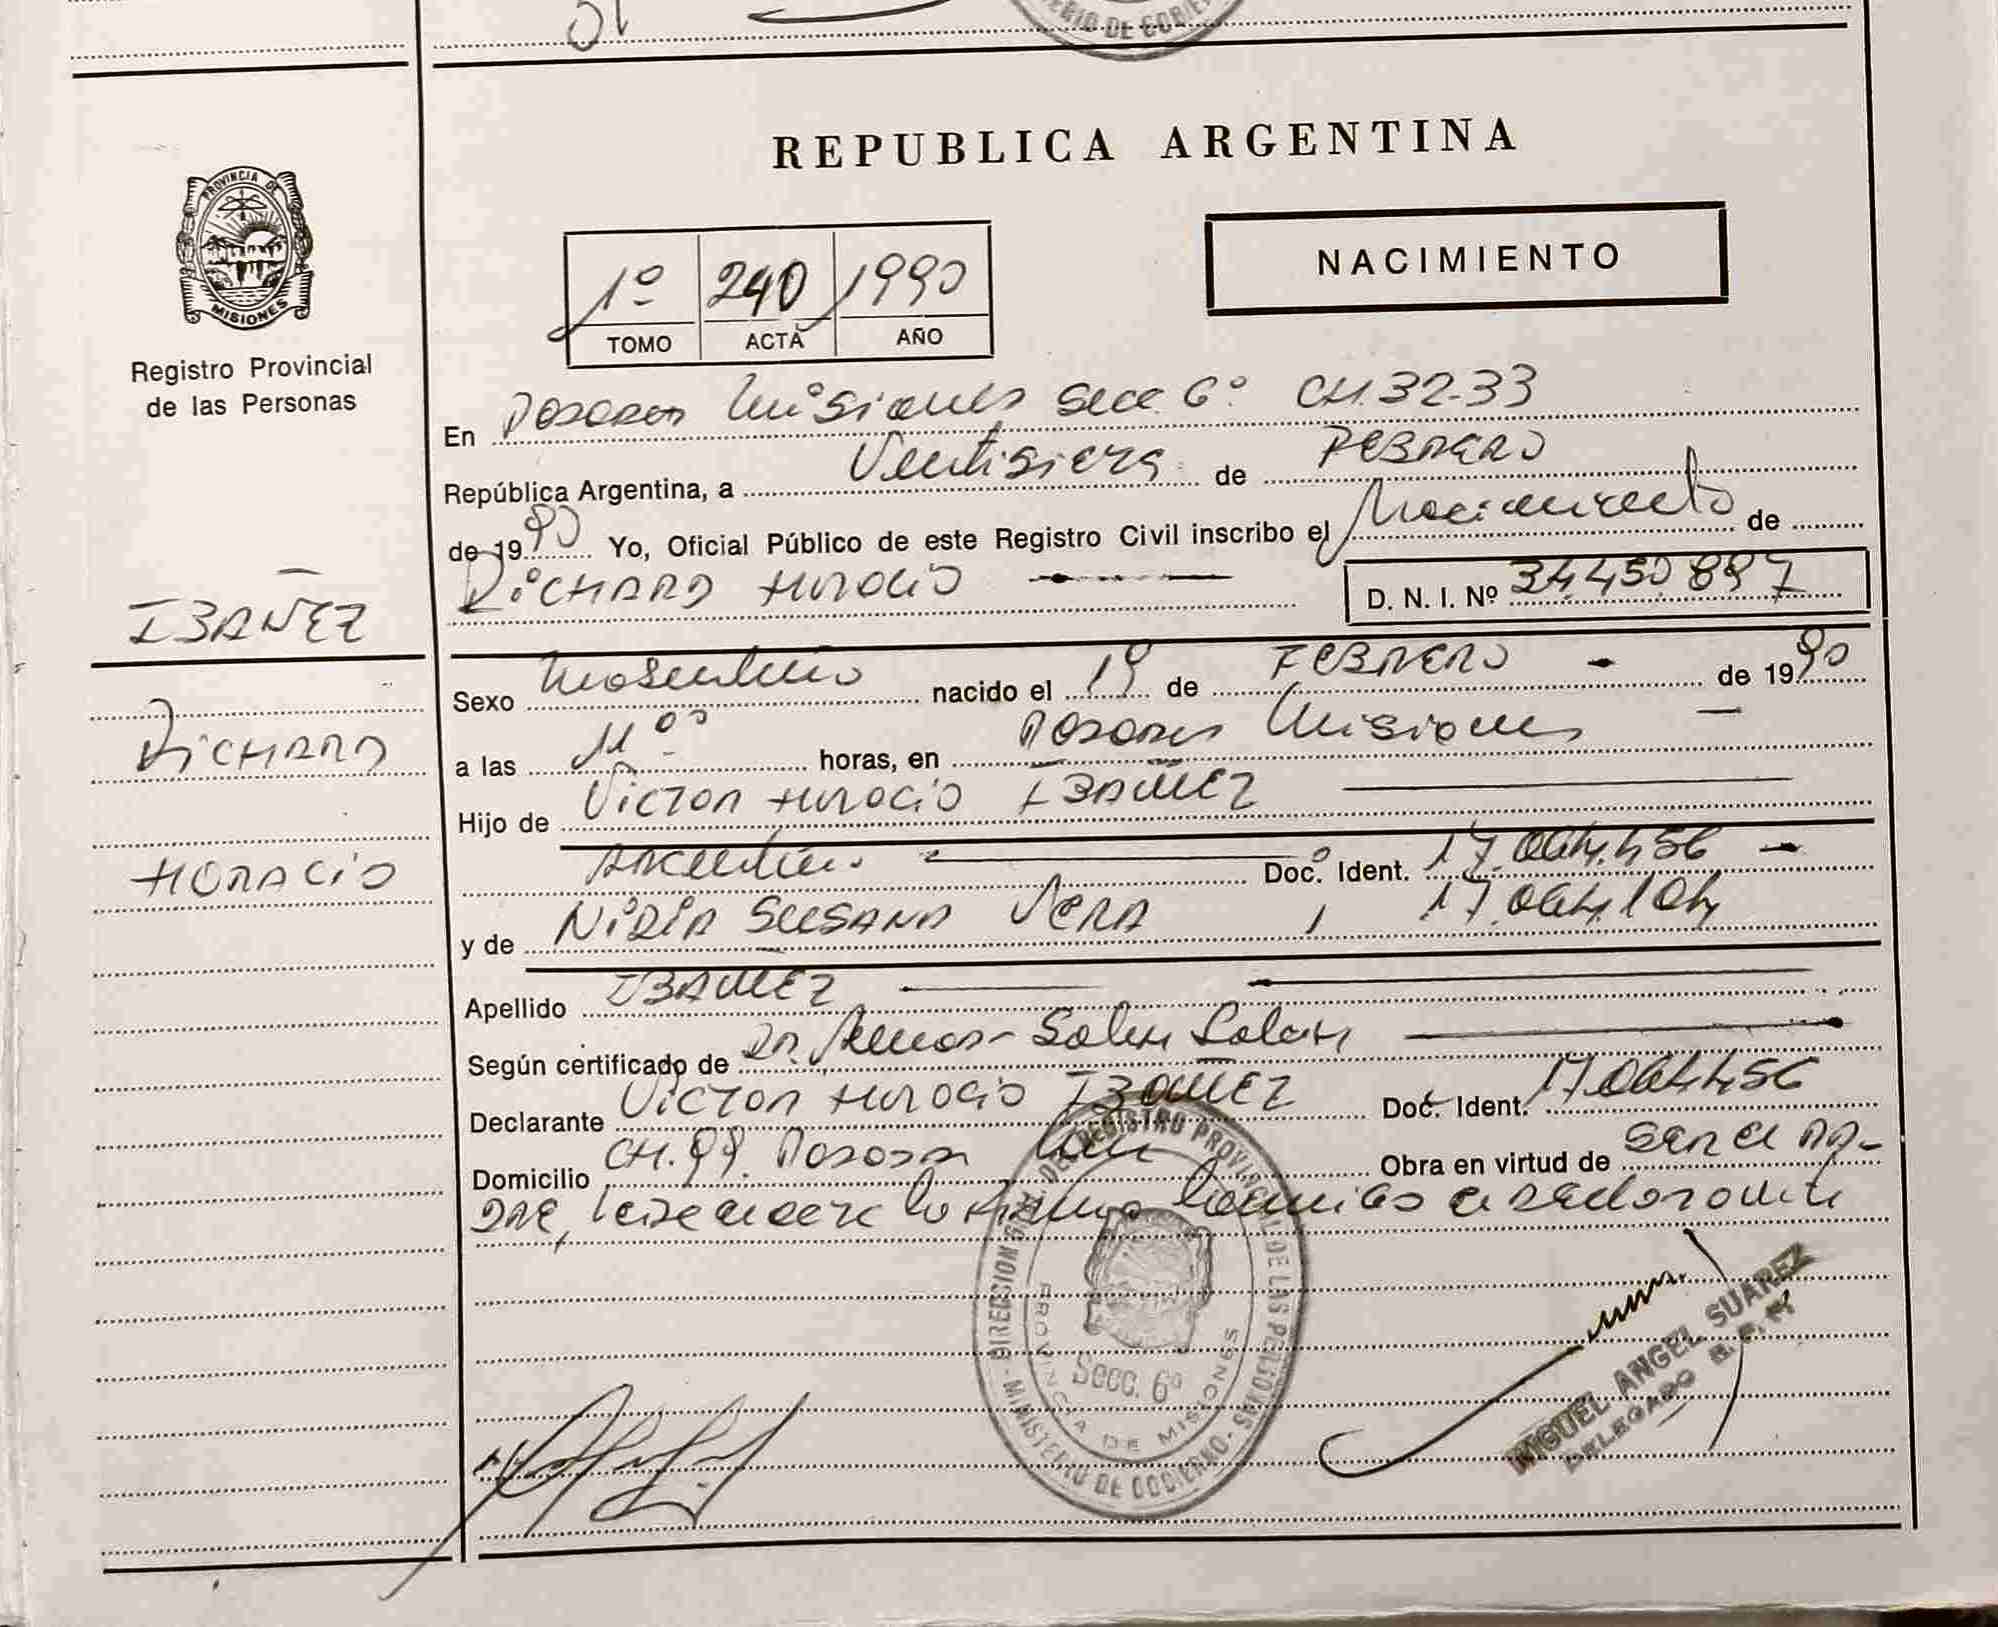 REPUBLICA ARGENTINA
PROVINCIA DE
MISIONES
Registro Provincial
de las Personas
NACIMIENTO
1º 240 1990
TOMO ACTA AÑO
En Posadas Misiones Secc 6º CH.32-33
República Argentina, a Ventisiete de FEBRERO
de 1990 Yo, Oficial Público de este Registro Civil inscribo el Nacimiento de
RICHARD HORACIO D. N. I. Nº 34.450.897
IBAÑEZ
RICHARD
HORACIO
Sexo Masculino nacido el 19 de FEBRERO de 1990
a las 11 horas, en Posadas Misiones
Hijo de VICTOR HORACIO IBAÑEZ
Argentino Doc. Ident. 17.064.456
y de NIDIA SUSANA VERA 17.064.104
Apellido IBAÑEZ
Según certificado de DR.
Declarante VICTOR HORACIO IBAÑEZ Doc. Ident. 17.064.456
Domicilio CH. 99. Posadas Obra en virtud de SER EL PA-
DRE, la firma el declarante
DIRECCION GRAL. DEL REGISTRO PROVINCIAL DE LAS PERSONAS
MINISTERIO DE GOBIERNO
PROVINCIA DE MISIONES
Secc. 6º
MIGUEL ANGEL SUAREZ
DELEGADO R. P. P.